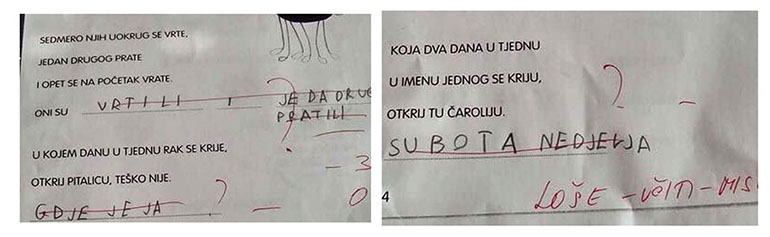 SEDMERO NJIH UOKRUG SE VRTE,
JEDAN DRUGOG PRATE
I OPET SE NA POČETAK VRATE.
ONI SU VRTILI I JE DA DRUG
PRATILI
?
U KOJEM DANU U TJEDNU RAK SE KRIJE,
OTKRIJ PITALICU, TEŠKO NIJE.
- 3
GDJE JE JA ? - 0
KOJA DVA DANA U TJEDNU
U IMENU JEDNOG SE KRIJU,
? -
OTKRIJ TU ČAROLIJU.
SUBOTA NEDJELJA
4
LOŠE - VJEŽBATI